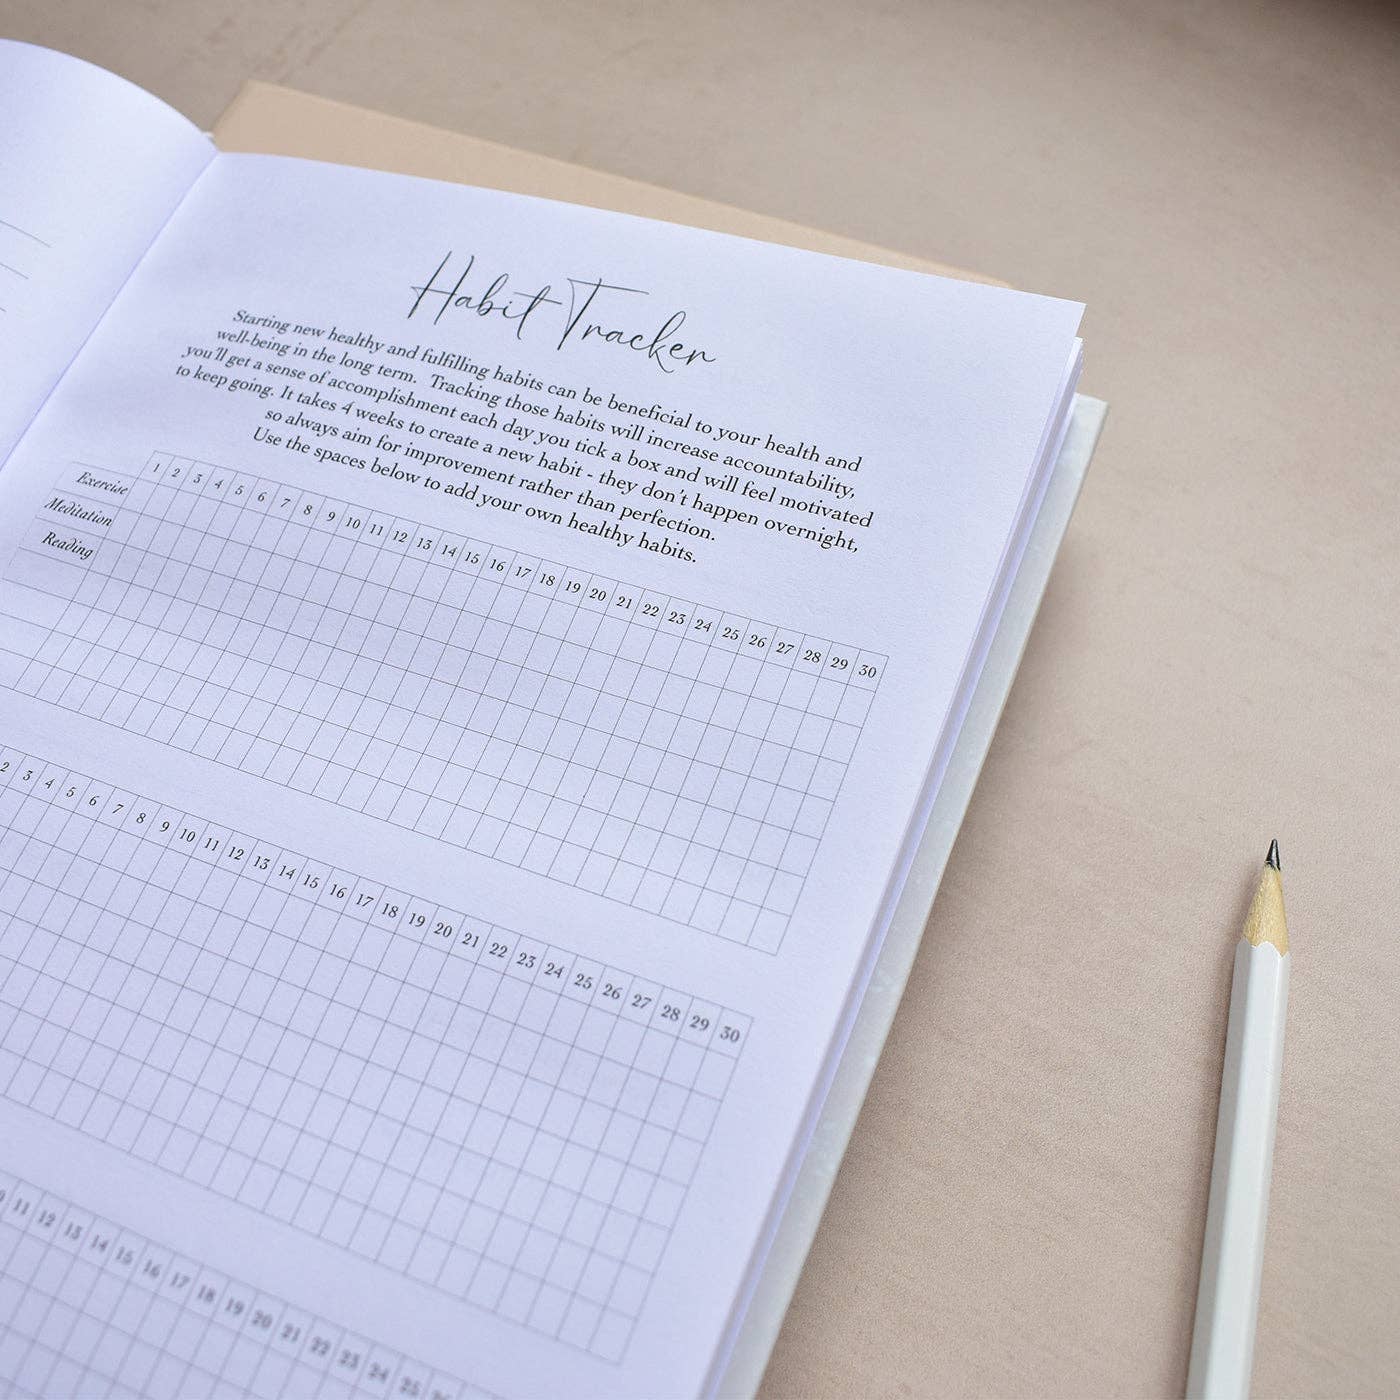 Habit Tracker
Starting new healthy and fulfilling habits can be beneficial to your health and
well-being in the long term. Tracking those habits will increase accountability,
you'll get a sense of accomplishment each day you tick a box and will feel motivated
to keep going. It takes 4 weeks to create a new habit - they don't happen overnight,
so always aim for improvement rather than perfection.
Use the spaces below to add your own healthy habits.
1 2 3 4 5 6 7 8 9 10 11 12 13 14 15 16 17 18 19 20 21 22 23 24 25 26 27 28 29 30
Exercise
Meditation
Reading
2 3 4 5 6 7 8 9 10 11 12 13 14 15 16 17 18 19 20 21 22 23 24 25 26 27 28 29 30
11 12 13 14 15 16 17 18 19 20 21 22 23 24 25 26